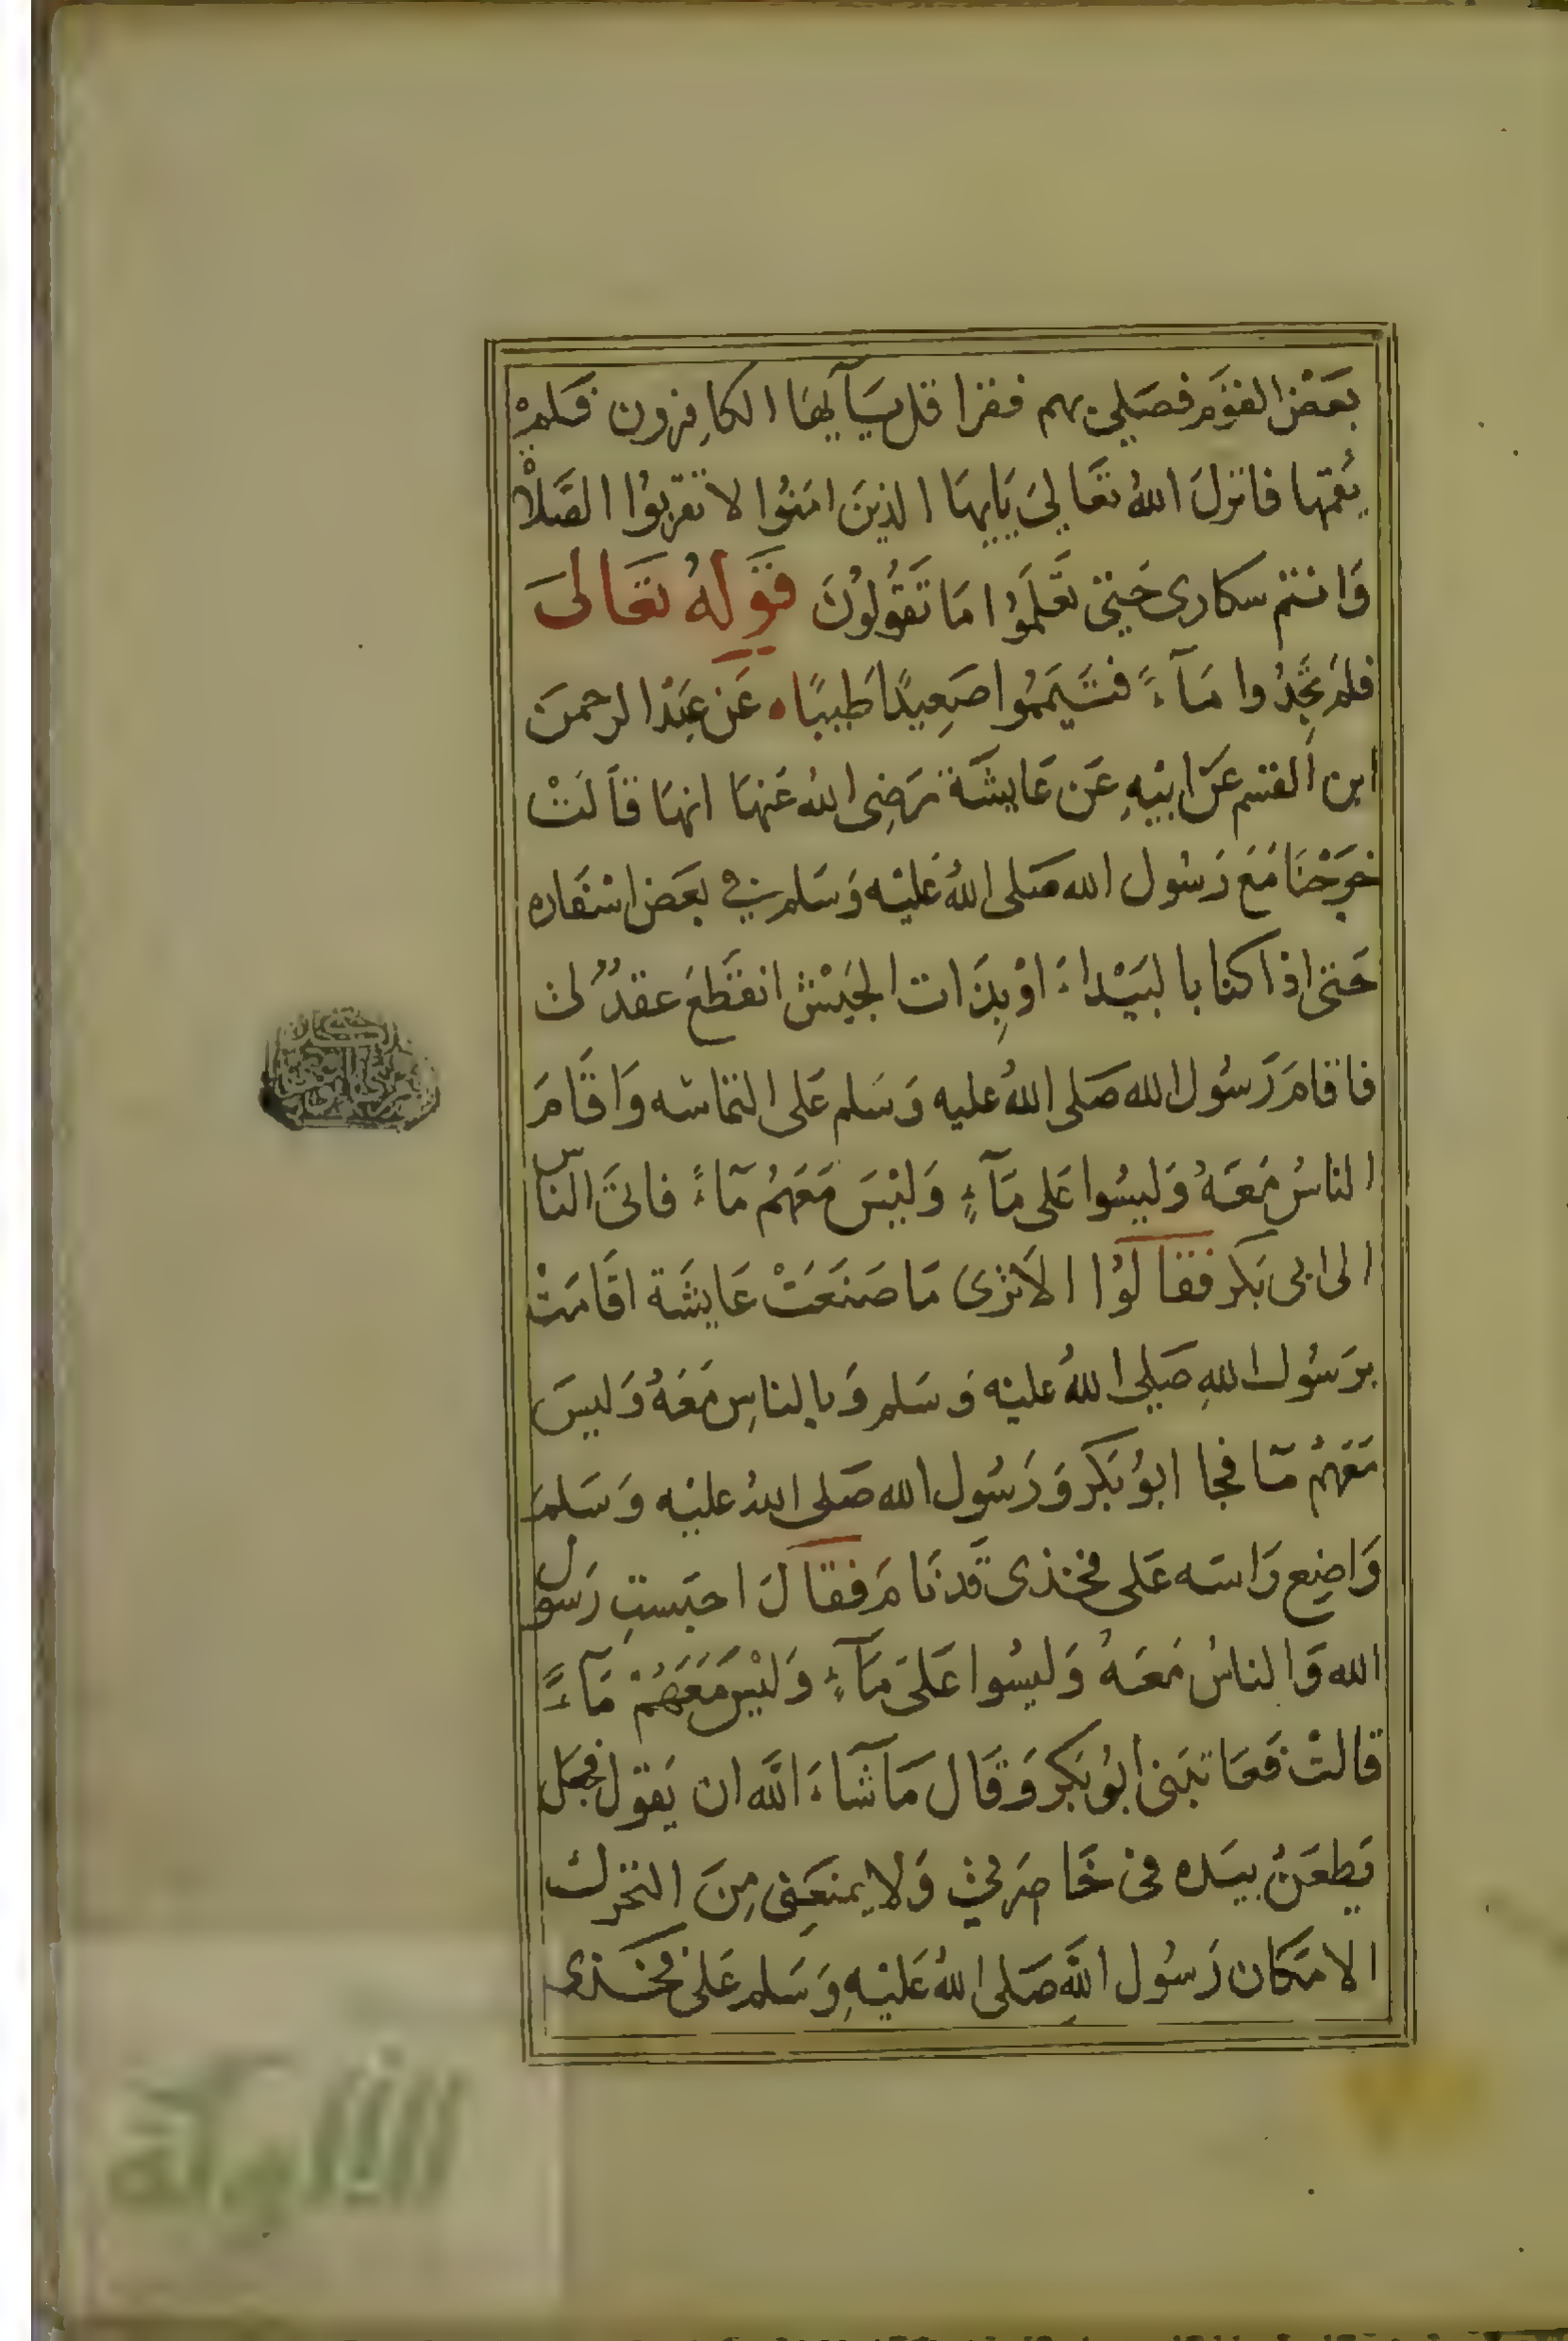 بَعَضْ القَوَم فصَلى بهم فقرا قل يَآ ايهَا الكافِرون فَلمْ
يُقمها فانزلَ اللهُ تعَالىَ يَايهَا الذينَ امَنُوا لا تقرَبوُا الصَلاْة
وَانتم سكارى حَتى تَعلَموُا مَا تَقُولُونَ قَولهُ تعَالىَ
فلمَ تَجِدُوا مَآءً فتَيَمَمُوا صَعِيدًا طَيبًا عَن عَبْد الرحمنَ
ابن القسم عَن ابيْهِ عَن عَايشَة رَضِى اللهُ عَنهَا انهَا قاَلتْ
خَرَجْنَا مَعَ رَسُول الله صَلى اللهُ عَليْه وَسَلم في بعَض اسْفاره
حَتى اذا كنا با لبَيْداءَ اوْ بِذَات الجَيْش انقَطعَ عقدُ لى
فاقامَ رَسُول الله صَلى اللهُ عليه وَسَلم عَلى التماسه وَاقَامَ
الناسُ مَعَهُ وَليسُوا عَلى مَآءٍ وَليْسَ مَعَهمُ مَآءً فاتىَ الناسَ
الى ابى بَكر فقالوُا الاَترى مَا صَنَعَتْ عَايشَة اقَامَتْ
برَسُول اللهِ صَلى اللهُ عليْه وَ سَلم وَبالناسِ مَعَهُ وَليسَ
مَعَهمُ مَا فجا ابوُ بَكر وَرَسُول الله صَلى اللهُ عليْه وَسَلمَ
وَاضِع رَاسَه عَلى فخذى قَد نَامَ فقَالَ احبَستِ رَسول
الله وَالناسُ مَعَهُ وَليسُوا عَلىَ مَآءٍ وَليْسَ مَعَهُمْ مَآءً
قالتْ فَعَاتبَنى ابُو بَكر وَقَال مَآشَاءَ اللَّه ان يَقول فجَعل
يَطعَنُ بيَده فى خَاصِرتى وَلا يمنَعَنِى مِنَ التحرك
الا مَكان رَسُول اللَّهِ صَلى اللهُ عَليْهِ وَسَلم عَلى فَخذى
الألوكة